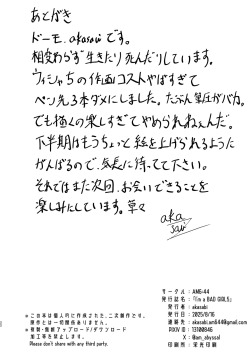 あとがき
ドーモ、akasaviです。
相変わらず生きたり死んだりしています。
ウィシャちの作画コストやばすぎて
ペン先3本ダメにしました。たぶん筆圧がバカ。
でも描くの楽しすぎてやめられねぇんだ。
下半期はもうちょっと絵を上げられるように
がんばるので、気長に待ってて下さい。
それではまた次回、お会いできることを
楽しみにしています。草々
akasavi
※この本は個人的に作られた、二次創作です。
原作とは一切関係ありません。
※複製・無断アップロード/ダウンロード
加工等を禁止します。
Please don't share with any third party.
サークル: AM6:44
発行誌名: 『I'm a BAD GIRL』
発行者: akasabi
発行日: 2025/6/16
連絡先: akasabi.am644@gmail.com
PIXIV ID: 13100846
X: @am_abyssal
印刷所: 栄光印刷